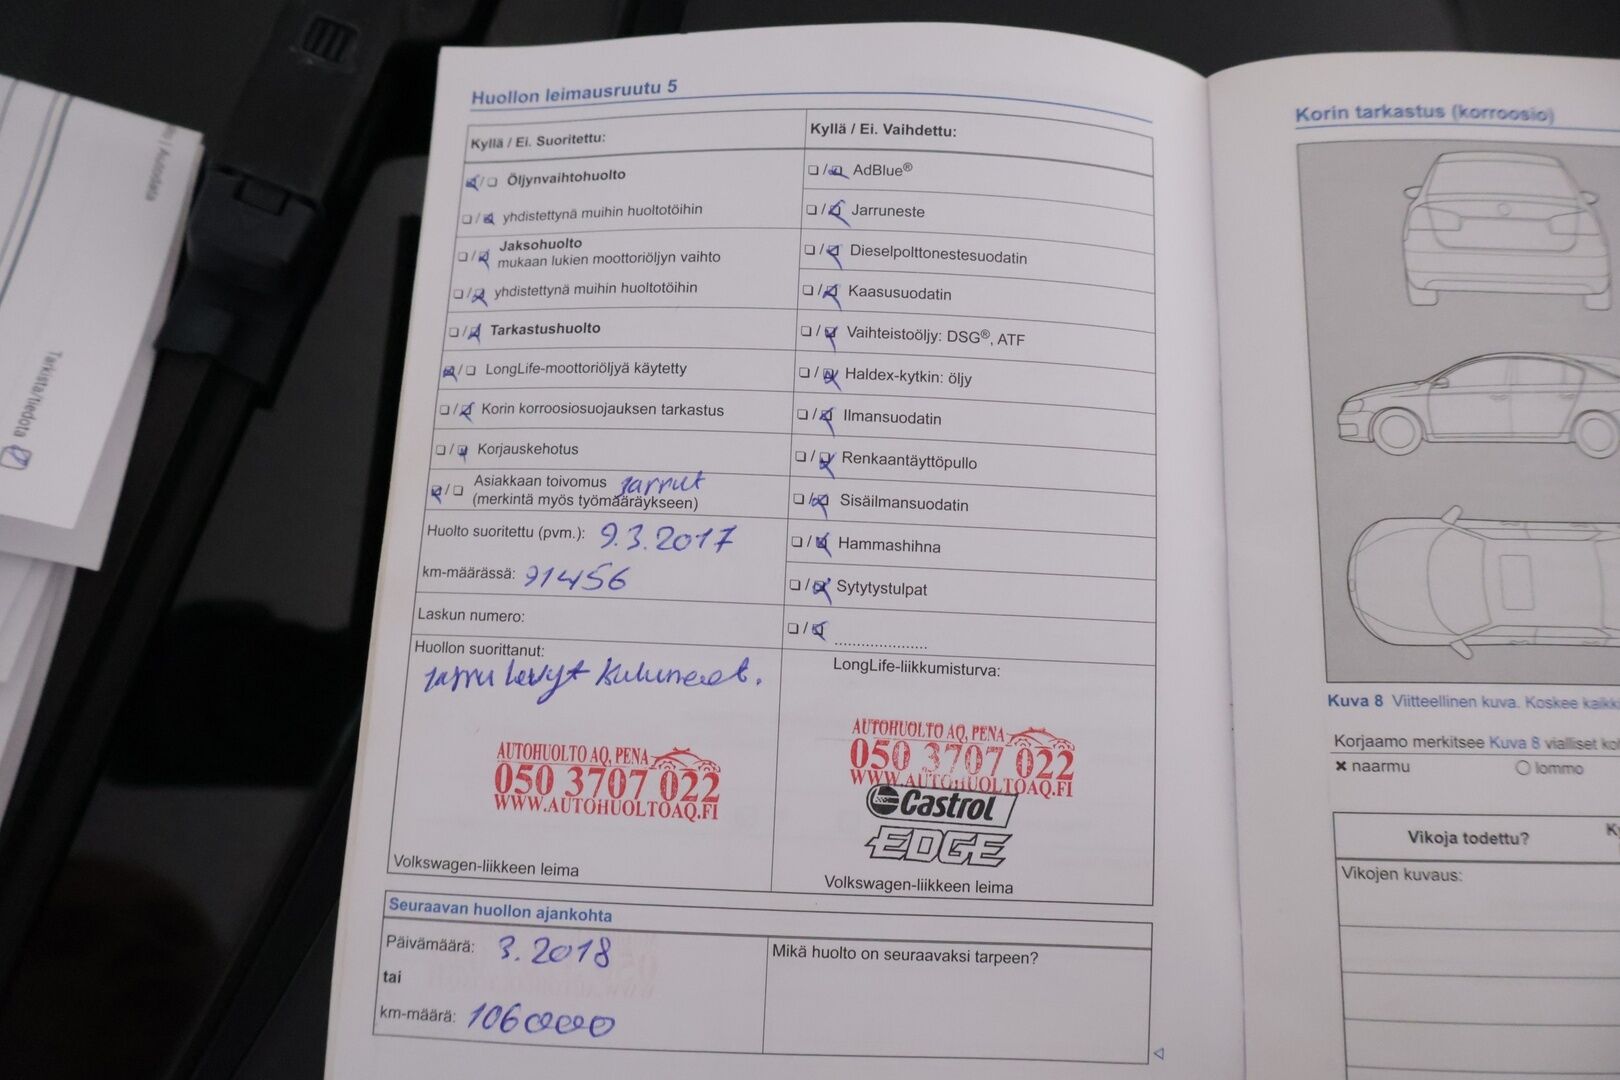 Huollon leimausruutu 5
Kyllä / Ei. Suoritettu:
Öljynvaihtohuolto
yhdistettynä muihin huoltotöihin
Jaksohuolto
mukaan lukien moottoriöljyn vaihto
yhdistettynä muihin huoltotöihin
Tarkastushuolto
LongLife-moottoriöljyä käytetty
Korin korroosiosuojauksen tarkastus
Korjauskehotus
Asiakkaan toivomus Jarrut
(merkintä myös työmääräykseen)
Huolto suoritettu (pvm.): 9.3.2017
km-määrässä: 91456
Laskun numero:
Huollon suorittanut:
Jarru levyt kuluneet.
AUTOHUOLTO AQ, PENA
050 3707 022
WWW.AUTOHUOLTOAQ.FI
Volkswagen-liikkeen leima
Kyllä / Ei. Vaihdettu:
AdBlue®
Jarruneste
Dieselpolttonestesuodatin
Kaasusuodatin
Vaihteistoöljy: DSG®, ATF
Haldex-kytkin: öljy
Ilmansuodatin
Renkaantäyttöpullo
Sisäilmansuodatin
Hammashihna
Sytytystulpat
.....................
LongLife-liikkumisturva:
AUTOHUOLTO AQ, PENA
050 3707 022
WWW.AUTOHUOLTOAQ.FI
Castrol
EDGE
Volkswagen-liikkeen leima
Seuraavan huollon ajankohta
Päivämäärä: 3.2018
tai
km-määrä: 106000
Mikä huolto on seuraavaksi tarpeen?
Korin tarkastus (korroosio)
Kuva 8 Viitteellinen kuva. Koskee
Korjaamo merkitsee Kuva 8 vialliset
× naarmu
○ lommo
Vikoja todettu?
Vikojen kuvaus:
Tarkista/tiedota